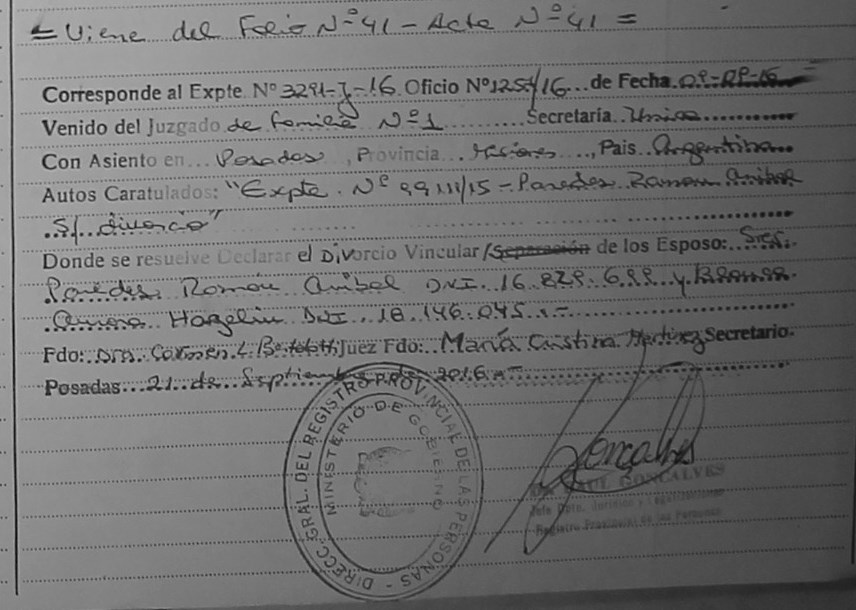 = Viene del Folio Nº 41 - Acta Nº 41 =
Corresponde al Expte Nº 3291-J-16 Oficio Nº 1254/16 de Fecha 09-09-16
Venido del Juzgado de Familia Nº 1 Secretaria Unica
Con Asiento en Posadas, Provincia Misiones, Pais Argentina
Autos Caratulados: "Expte. Nº 99111/15 - Paredes Ramon Anibal
S/ divorcio"
Donde se resuelve Declarar el Divorcio Vincular/Separación de los Esposo: Sres.
Paredes Román Anibal DNI. 16.829.699 y
Hazelin DNI. 18.146.045.-
Fdo: Dra. Carmen L. Juez Fdo: María Cristina Martinez Secretario.
Posadas 21 de Septiembre de 2016.-
DIRECC. GRAL. DEL REGISTRO PROVINCIAL DE LAS PERSONAS
MINISTERIO DE GOBIERNO
Goncalves
RAUL GONCALVES
Jefe Dpto.
Registro Provincial de las Personas